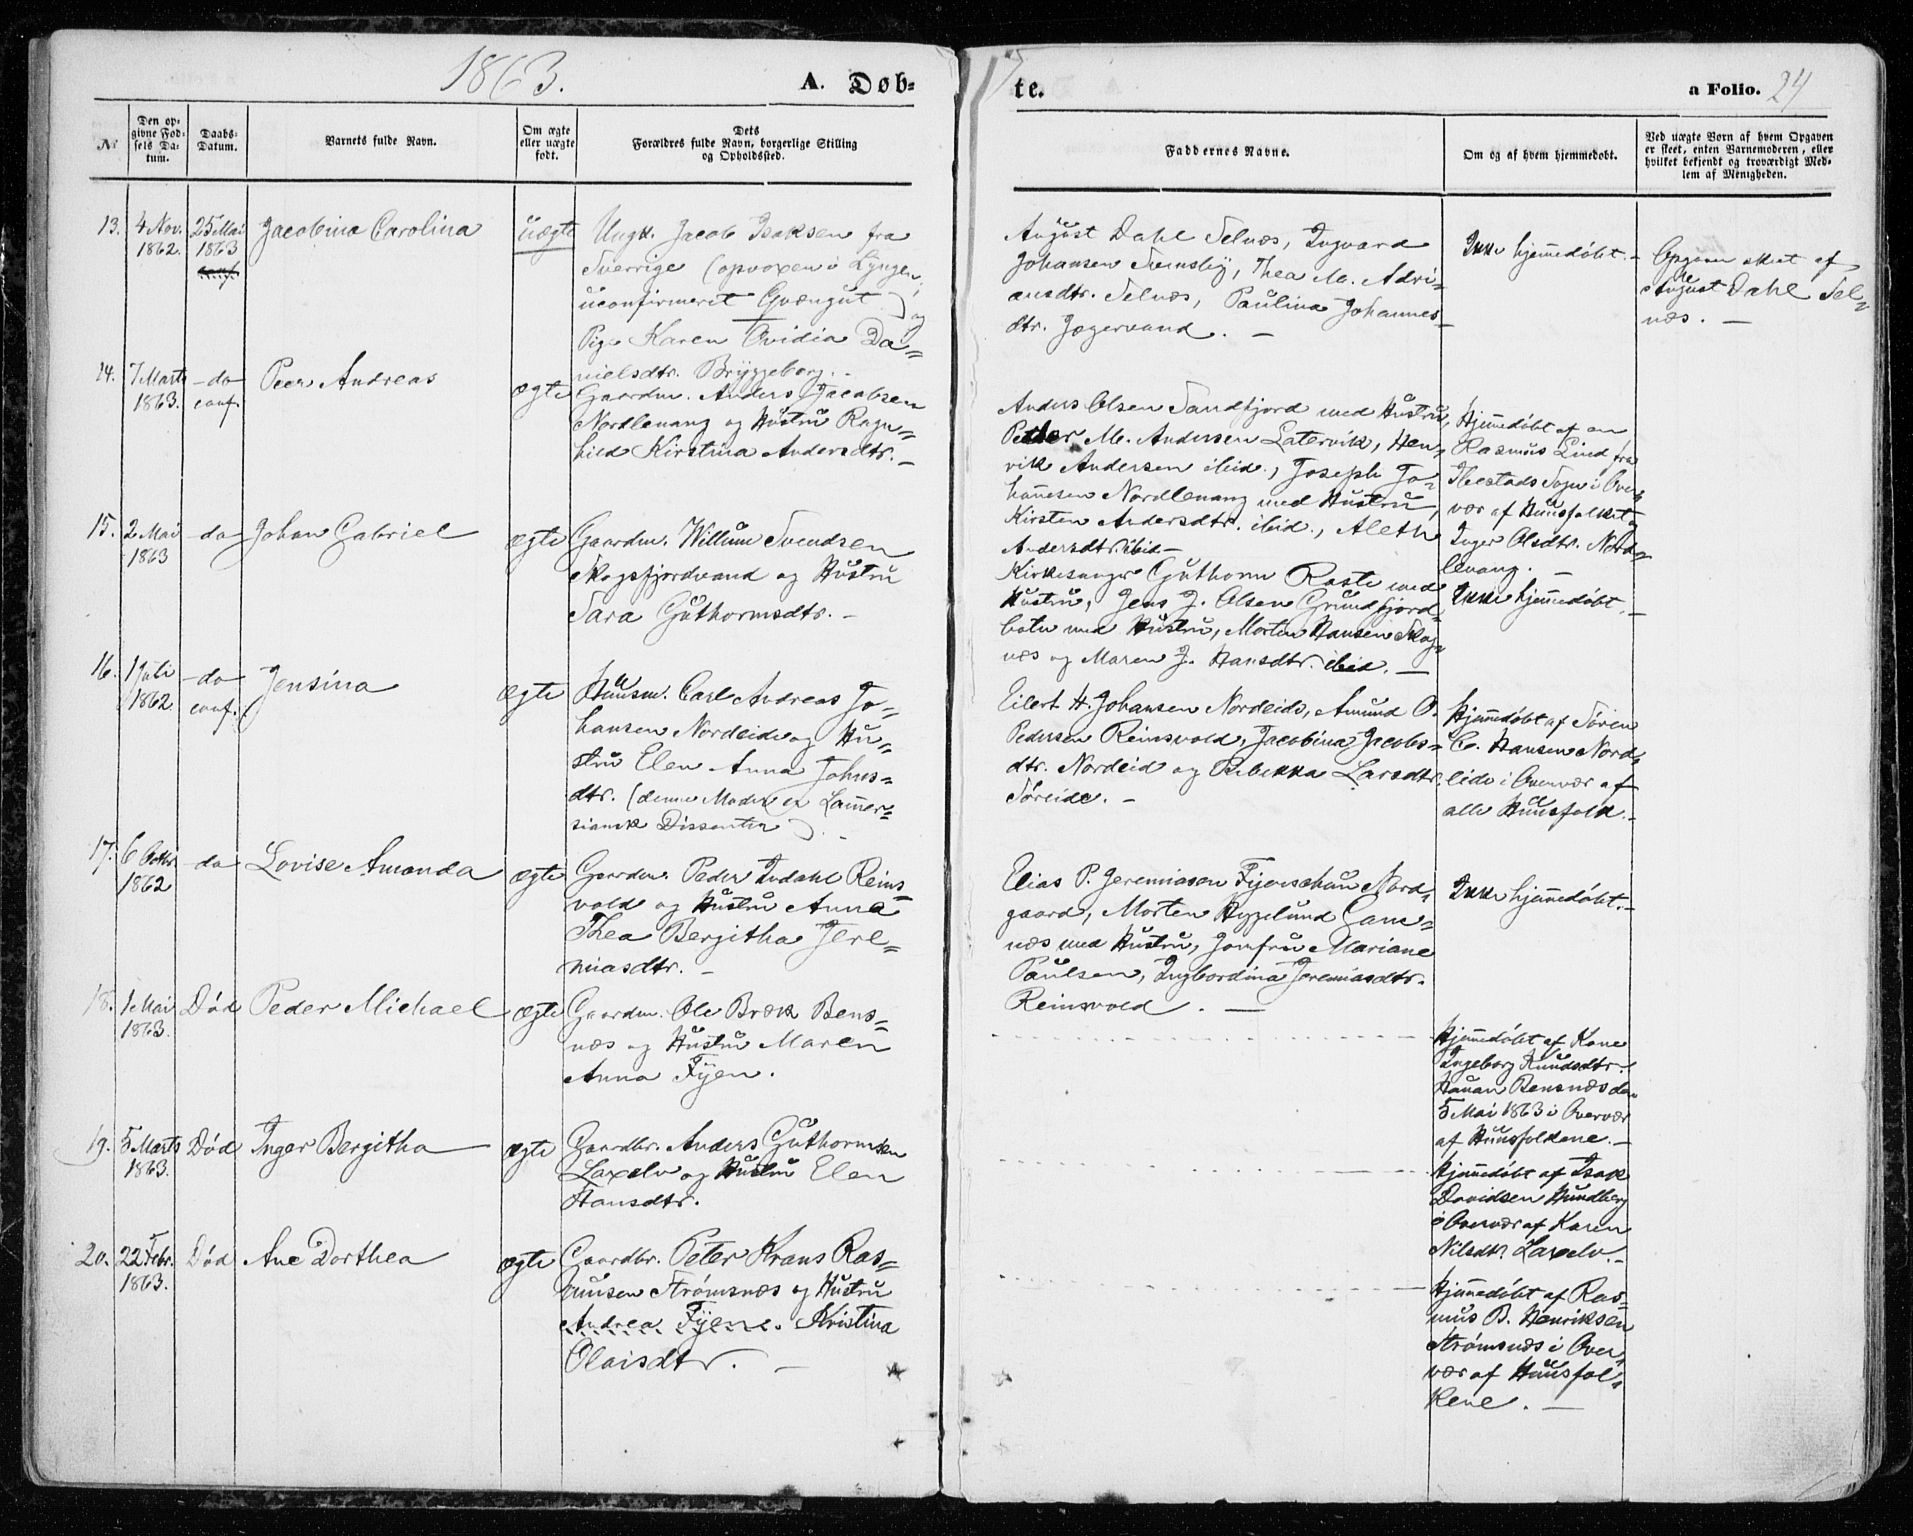 1863.
A. Døb-
te.
a Folio. 24
№
Den op-
givne Fød-
sels Da-
tum.
Daabs-
Datum.
Barnets fulde Navn.
Om ægte
eller uægte
født.
Dets
Forældres fulde Navn, borgerlige Stilling
og Opholdssted.
Faddernes Navne.
Om og af hvem hjemmedøbt.
Ved uægte Børn af hvem Opgaven
er skeet, enten Barnemoderen, eller
hvilket bekjendt og troværdigt Med-
lem af Menigheden.
13.
4 Nov.
1862.
25 Mai
1863
conf.
Jacobina Carolina
uægte
Ungk. Jacob Isaksen fra
Sverrige (opvoxen i Lyngen,
uconfirmeret Qvængut) og
Pige Karen Ovidia Da=
nielsdtr. Bryggeborg.
August Dahl Selnæs, Ingvard
Johansen Svensby, Thea M. Adri-
ansdtr. Selnæs, Paulina Johannes-
dtr. Jægervand. -
Ikke hjem̄edøbt. -
Opgaven skeet af
August Dahl Sel=
næs. -
14.
7 Marts
1863.
- do
conf.
Peer Andreas
ægte
Gaardm. Anders Jacobsen
Nordlenang og Hustru Ragn=
hild Kirstina Andersdtr. -
Anders Olsen Sandfjord med Hustru,
Peder M. Andersen Latervik, Hen=
rik Andersen ibid., Joseph Jo-
han̄esen Nordlenang med Hustru,
Kirsten Andersdtr. ibid., Aleth
Andersdtr. ibid -
Hjem̄edøbt af en
Rasmus Lind fra
Ibestads Sogn i Over-
vær af Huusfolket og
Inger Olsdtr. Nord=
lenang. -
15.
2 Mai
1863
- do
Johan Gabriel
ægte
Gaardm. Willum Svendsen
Skogsfjordvand og Hustru
Sara Guthormsdtr. -
Kirkesanger Guthorm Raste med
Hustru, Jens J. Olsen Grundfjord-
botn med Hustru, Morten Hansen Skog-
næs og Maren J. Hansdtr. ibid. -
Ikke hjem̄edøbt. -
16.
1 Juli
1862
- do
conf.
Jensina
ægte
Huusm. Carl Andreas Jo-
hansen Nordeide og Hu=
stru Elen Anna Johns=
dtr. (denne Moder er Lam̄er=
siansk Dissenter).
Eilert H. Johansen Nordeide, Amund O.
Pedersen Reinsvold, Jacobina Jacobs=
dtr. Nordeid og Rebekka Larsdtr.
Søreide. -
Hjem̄edøbt af Søren
C. Hansen Nord-
eide i Overvær af
alle Huusfolk. -
17.
6 Octbr
1862
- do
Lovise Amanda
ægte
Gaardm. Peder Indahl Reins=
vold og Hustru Anna
Thea Bergitha Jere=
miasdtr. -
Elias P. Jeremiasen Fjerschau Nord-
gaard, Morten Hyggelund Cam=
næs med Hustru, Jomfru Mariane
Paulsen, Ingbordina Jeremiasdtr.
Reinsvold. -
Ikke hjem̄edøbt. -
18.
1 Mai
1863.
Død
Peder Michael
ægte
Gaardm. Ole Bræk Bens=
næs og Hustru Maren
Anna Fyen.
Hjem̄edøbt af Kone
Ingeborg Knudsdtr.
Hauan Bensnæs den
5 Mai 1863 i Overvær
af Huusfolkene. -
19.
5 Marts
1863.
Død
Inger Bergitha
ægte
Gaardbr. Anders Guthormsen
Laxelv og Hustru Elen
Hansdtr.
Hjem̄edøbt af Isak
Davidsen Hundberg
i Overvær af Karen
Nilsdtr. Laxelv. -
20.
22 Febr.
1863.
Død
Ane Dorthea
ægte
Gaardbr. Peter Krans Ras=
mussen Strømsnæs og Hustru
Andrea Fyen. Kristina
Olaisdtr. -
Hjem̄edøbt af Ras=
mus B. Henriksen
Strømsnæs i Over-
vær af Huusfol-
kene. -